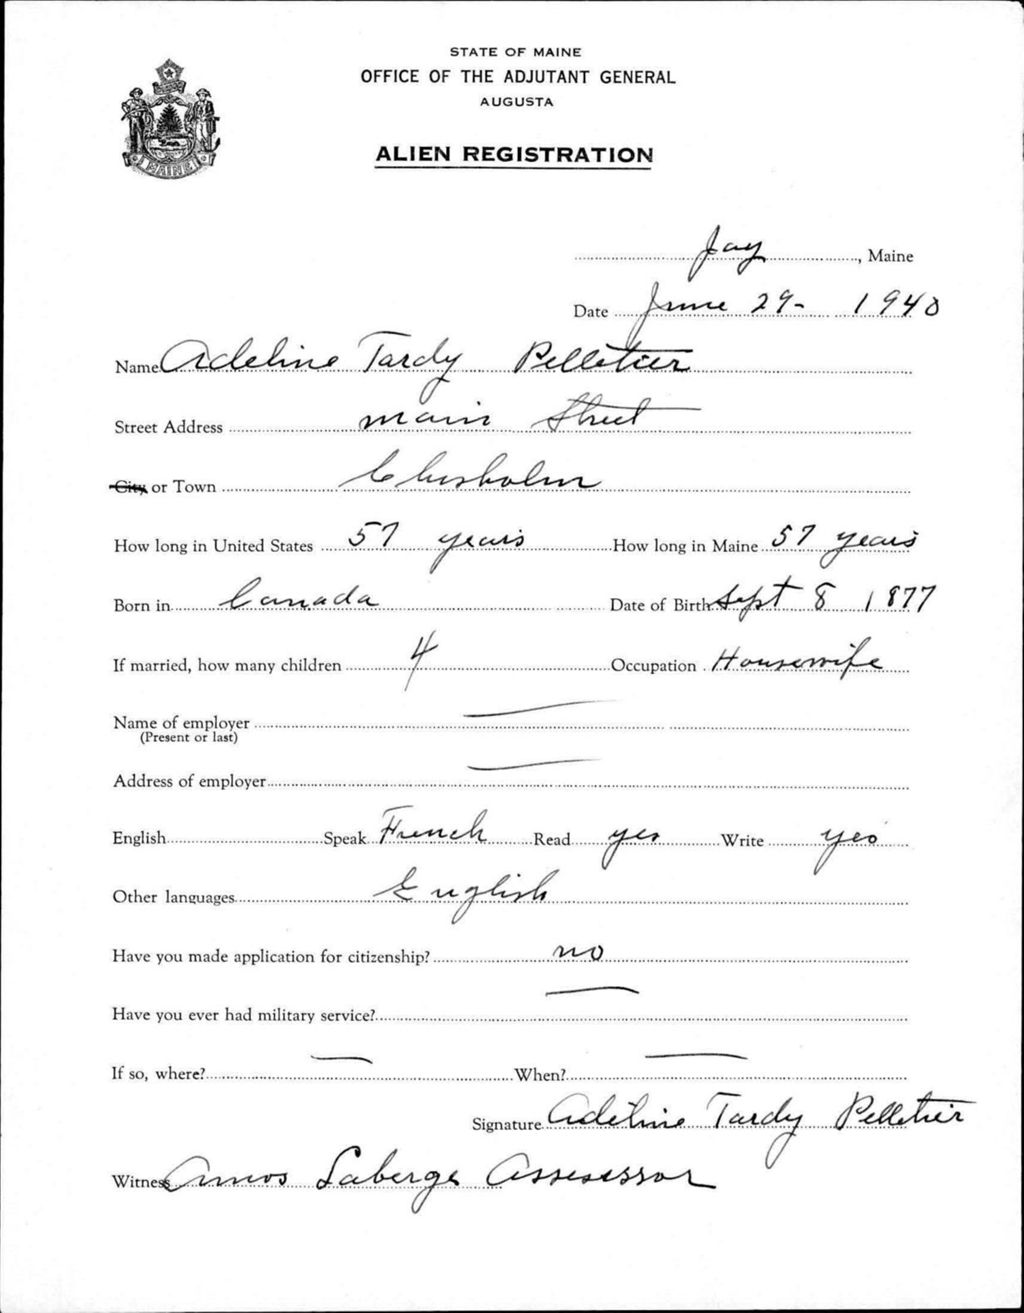 STATE OF MAINE
OFFICE OF THE ADJUTANT GENERAL
AUGUSTA
ALIEN REGISTRATION
MAINE
Jay, Maine
Date June 29- 1940
Name Adeline Tardy Pelletier
Street Address Main Street
City or Town Chisholm
How long in United States 57 years How long in Maine 57 years
Born in Canada Date of Birth Sept 8 1877
If married, how many children 4 Occupation Housewife
Name of employer
(Present or last)
Address of employer
English Speak French Read yes Write yes
Other languages English
Have you made application for citizenship? no
Have you ever had military service?
If so, where? When?
Signature Adeline Tardy Pelletier
Witness Amos Laberge Assesssor